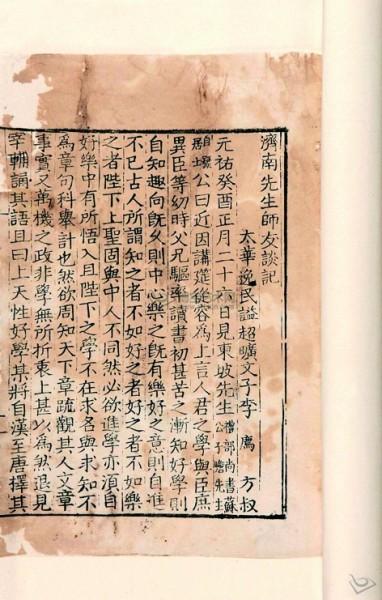 濟南先生師友談記
太華逸民謚超曠文子李廌方叔
元祐癸酉正月二十日見東坡先生禮部尚書蘇公子瞻先生
公曰近因講筵從容為上言人君之學與臣庶
異臣等幼時父兄驅率讀書初甚苦之漸知好學則
自知趣向旣久則中心樂之旣有樂好之意則自進
不已古人所謂知之者不如好之者好之者不如樂
之者陛下上聖固與中人不同然必欲進學亦湏自
好樂中有所悟入且陛下之學不在求名與求知不
為章句科舉計也然欲周知天下章疏觀其人文章
事實又萬機之政非學無所折衷上甚以為然退見
宰輔誦其語且曰上天性好學某將自漢至唐擇其